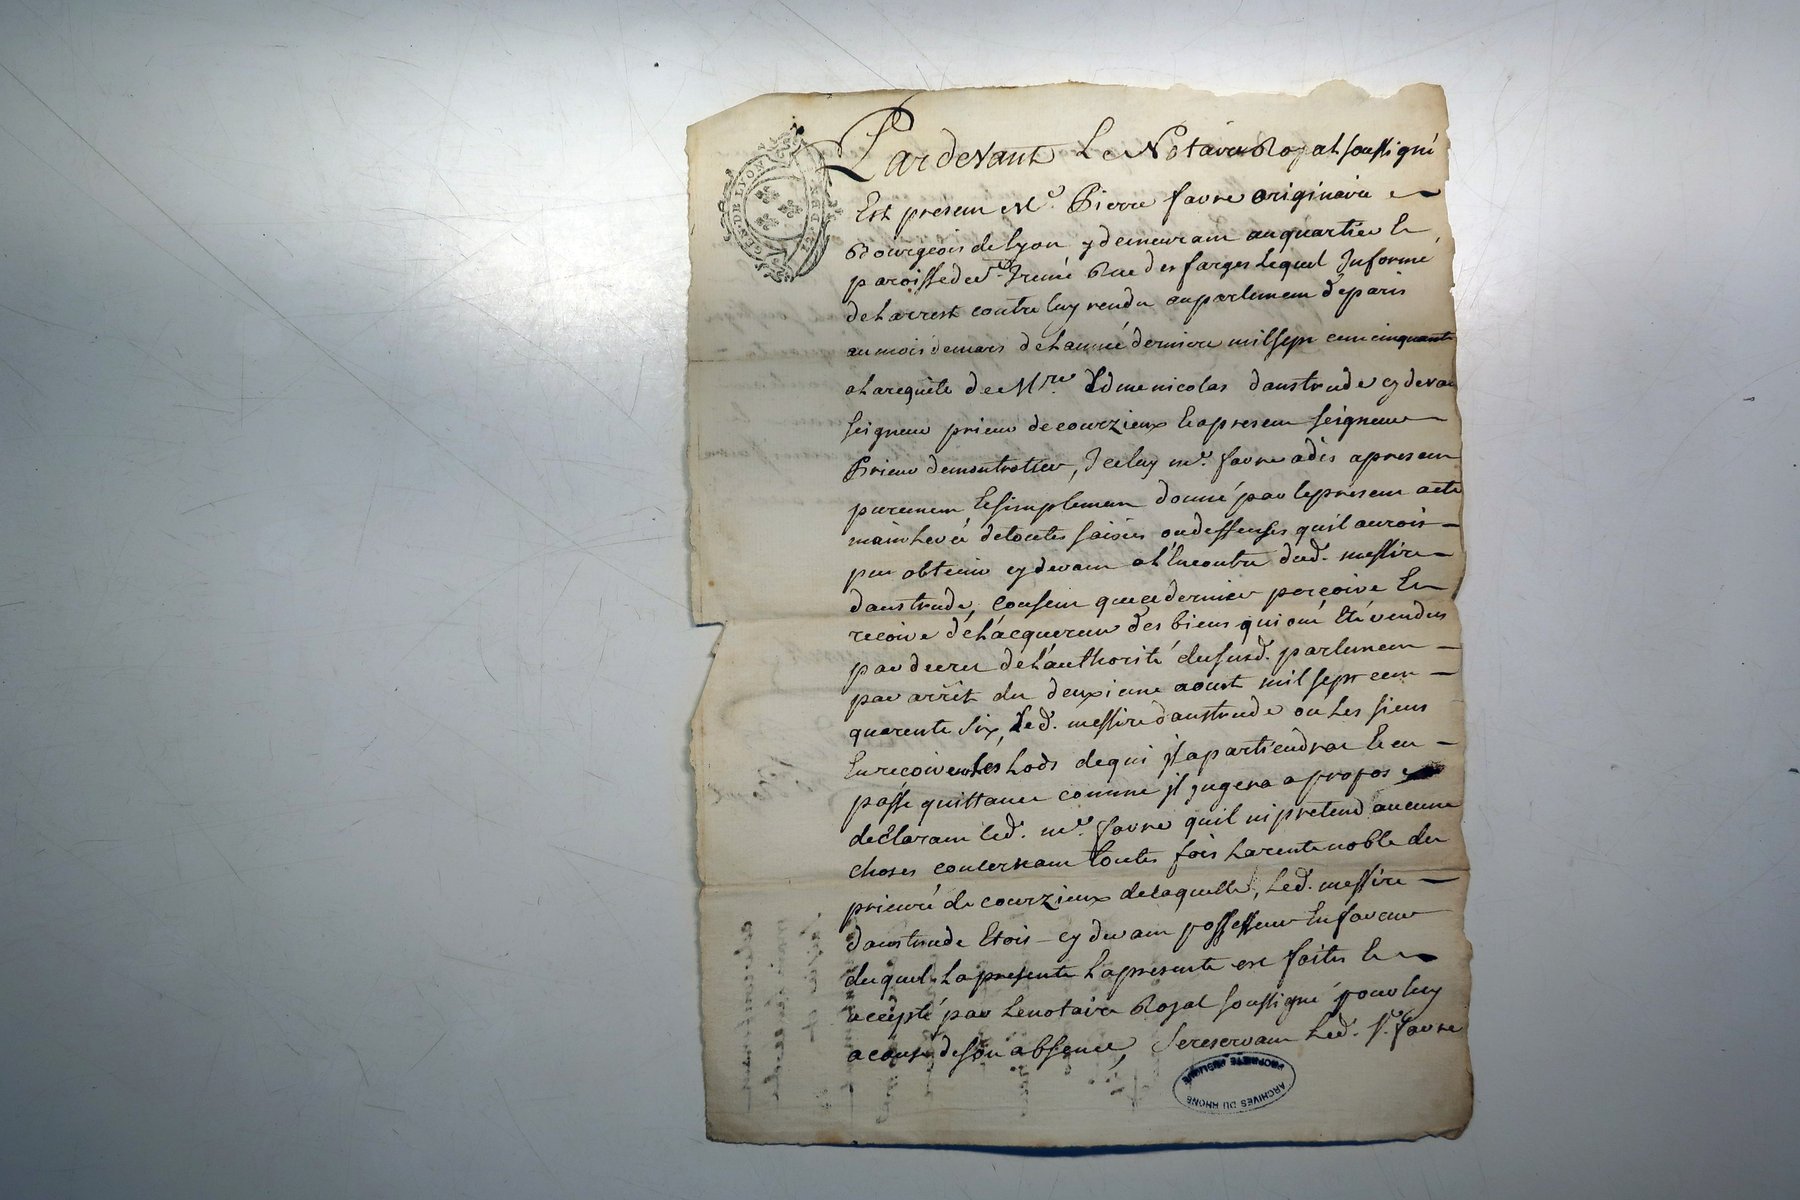 GEN. DE LYON
Pardevant Le Notaire Royal soussigné
Est presen Me. Pierre favre originaire e
Bourgeois de lyon y demeuram au quartier le
paroisse de St. Irené Rue des farges Lequel Informé
de L arrest contre luy rendu au parlemem de paris
au mois de mars de L année derniere mil sept cem cinquante
a La requéte de Mre. Edme nicolas daustrude cy devam
seigneur prieur de courzieux Le a presem seigneur
Prieur de montrotier, Iceluy me. favre a dès a presem
puremem Le simplemem donné par le présem acte
main Levée de toutes saisies ou deffenses qu'il aurois
pu obtenir cy devam a L'encontre dud. messire
daustrude, consem que ce dernier perçoive En
reçoive de L'acquereur des biens qui ont Eté vendus
par decret de L'authorité du susd. parlemem
par arrêt du deuxieme aoust mil sept cem
quarente six, Led. messire daustrude ou Les siens
En reçoivem Les Lods de qui il apartiendra Le en
passe quittance comme il jugera a propos
declaram Led. me. favre qu'il ni pretend aucune
choses concernam toutes fois La rente noble du
prieuré de courzieux de laquelle, Led. messire
daustrude Etois cy devam possesseur En faveur
duquel La presente La presente est faites Le
accepté par Le notaire Royal soussigné pour luy
a cause de son absence, Se reservam Led. Sr. favre
ARCHIVES DU RHONE
PROPRIÉTÉ PUBLIQUE